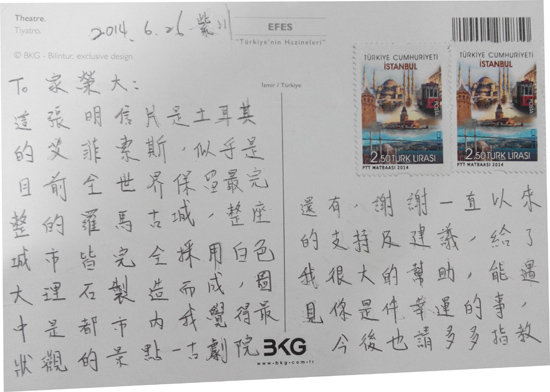 Theatre.
Tiyatro.
2014.6.26 紫川
EFES
"Türkiye'nin Hazineleri"
© BKG - Bilintur, exclusive design
İzmir / Türkiye
TÜRKİYE CUMHURİYETİ
İSTANBUL
2.50 TÜRK LİRASI
PTT MATBAASI 2014
TÜRKİYE CUMHURİYETİ
İSTANBUL
2.50 TÜRK LİRASI
PTT MATBAASI 2014
To 家榮大:
這張明信片是土耳其
的艾菲索斯,似乎是
目前全世界保留最完
整的羅馬古城,整座
城市皆完全採用白色
大理石製造而成,圖
中是都市內我覺得最
狀觀的景點-古劇院
還有,謝謝一直以來
的支持及建議,給了
我很大的幫助,能遇
見你是件幸運的事,
今後也請多多指教
BKG
www.bkg.com.tr